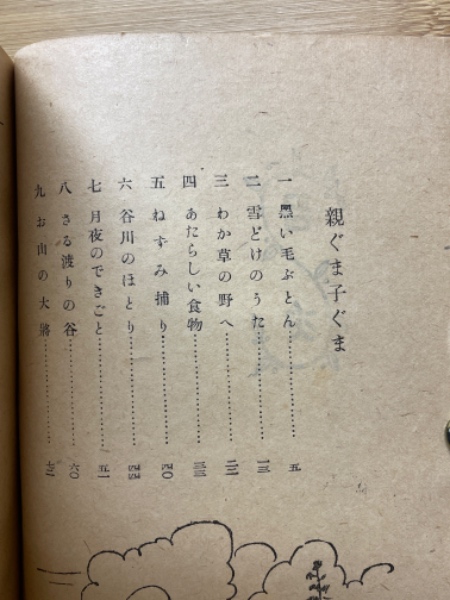 親ぐま子ぐま
一 黒い毛ぶとん……………五
二 雪どけのうた……………一三
三 わか草の野へ……………二三
四 あたらしい食物……………三三
五 ねずみ捕り……………四〇
六 谷川のほとり……………四四
七 月夜のできごと……………五一
八 さる渡りの谷……………六〇
九 お山の大將……………